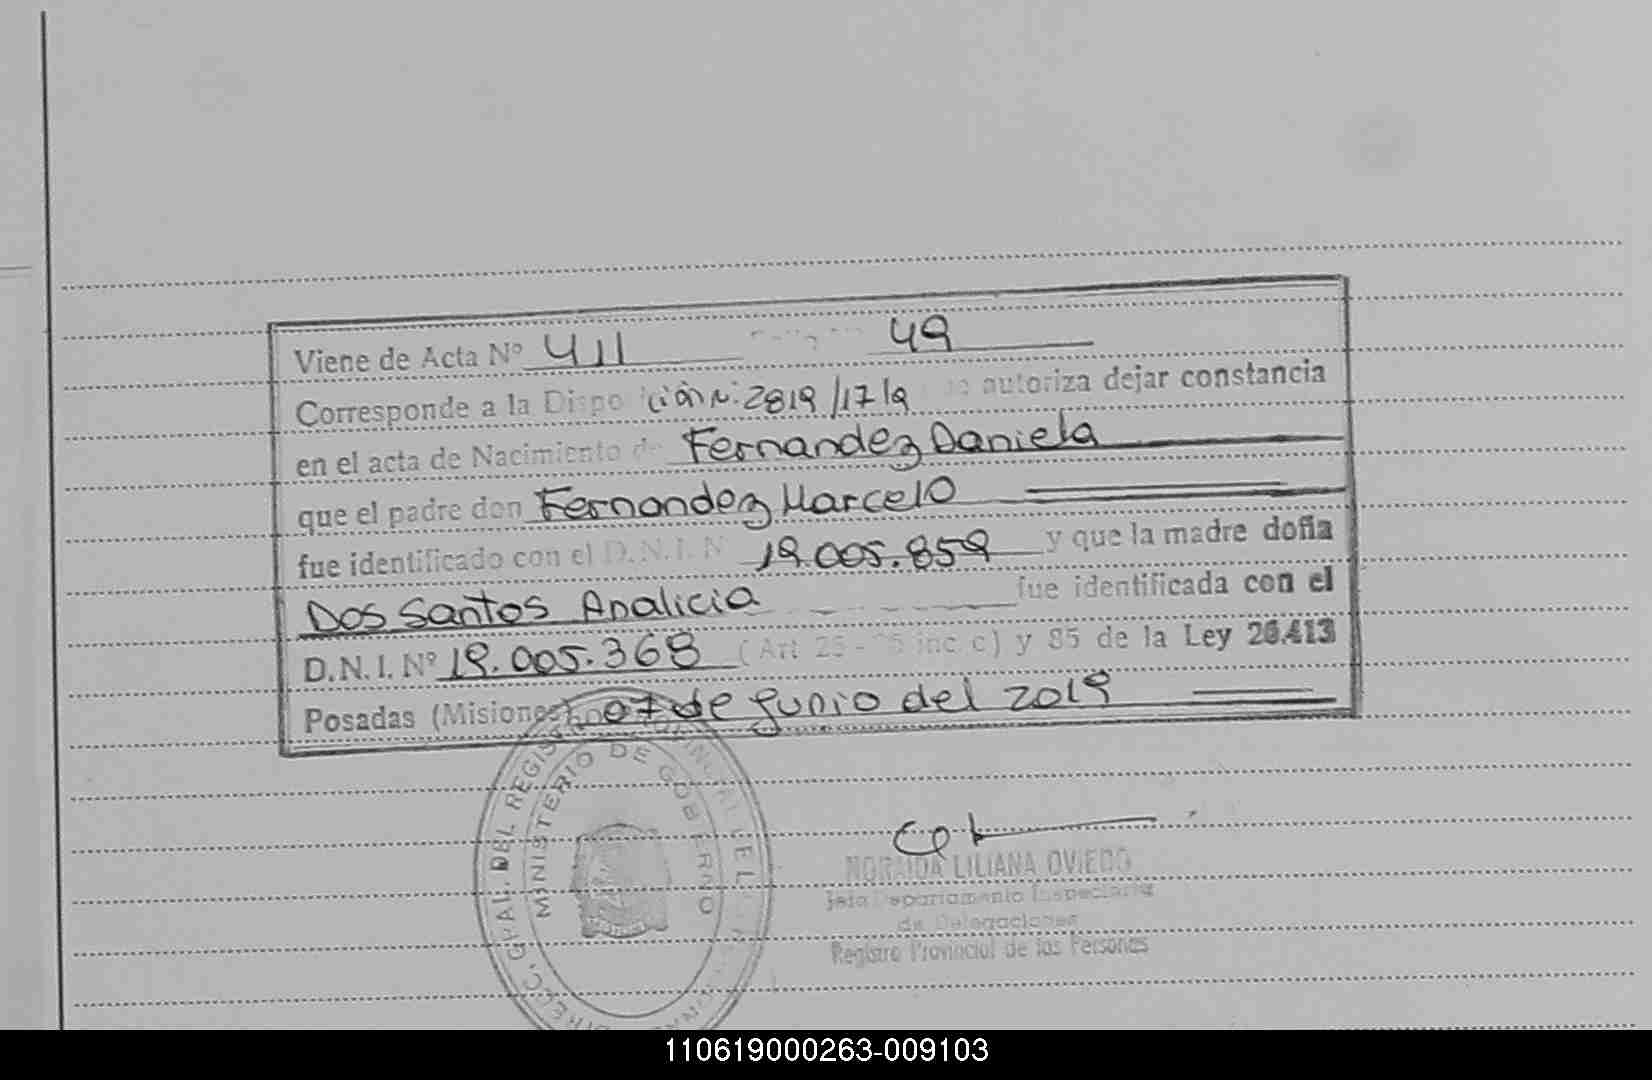 Viene de Acta Nº 411 49
Corresponde a la Disposición N: 2819/17/9 autoriza dejar constancia
en el acta de Nacimiento de Fernandez Daniela
que el padre don Fernandez Marcelo
fue identificado con el D.N.I. N 19.005.859 y que la madre doña
Dos Santos Analicia fue identificada con el
D.N.I. Nº 19.005.368 (Art 25 - inc c) y 85 de la Ley 26.413
Posadas (Misiones), 07 de Junio del 2019
DIRECC. GRAL. DEL REGISTRO PROVINCIAL DE LAS PERSONAS
MINISTERIO DE GOBIERNO
NORAIDA LILIANA OVIEDO
Jefa Departamento Inspectoria
de Delegaciones
Registro Provincial de las Personas
110619000263-009103